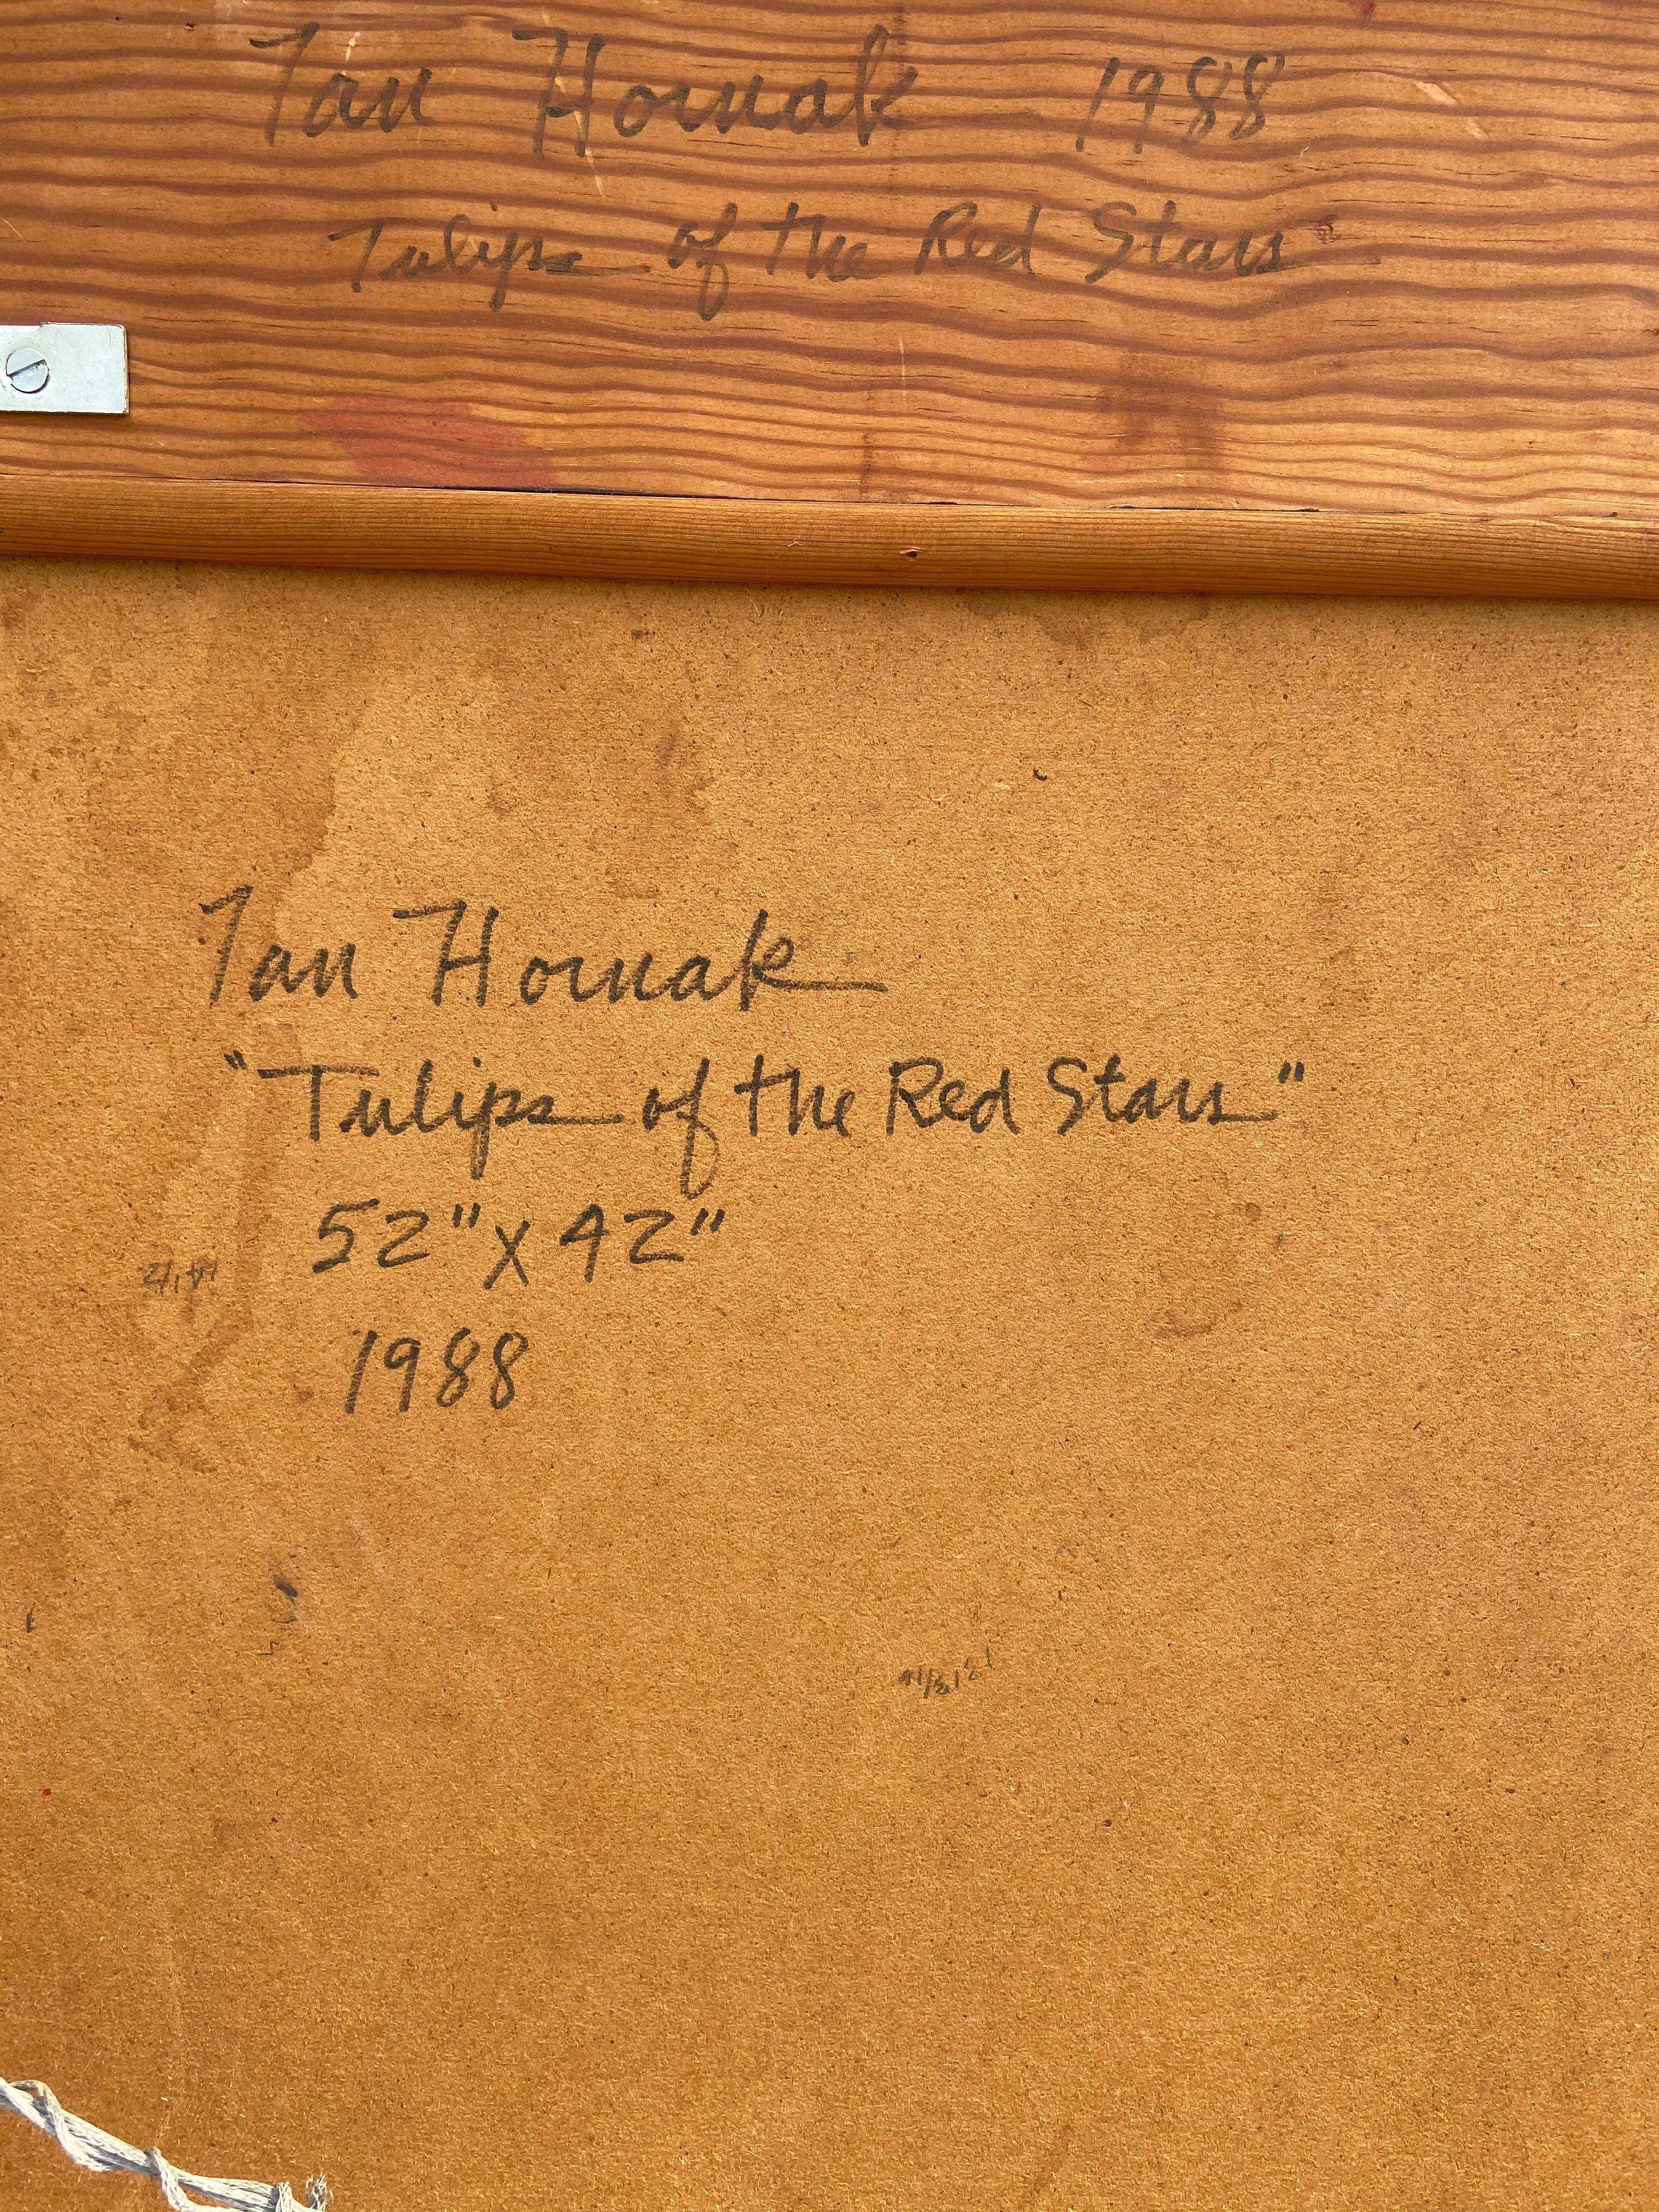 Ian Hornak 1988
Tulips of the Red Stars"
Ian Hornak
"Tulips of the Red Stars"
52" x 42"
1988